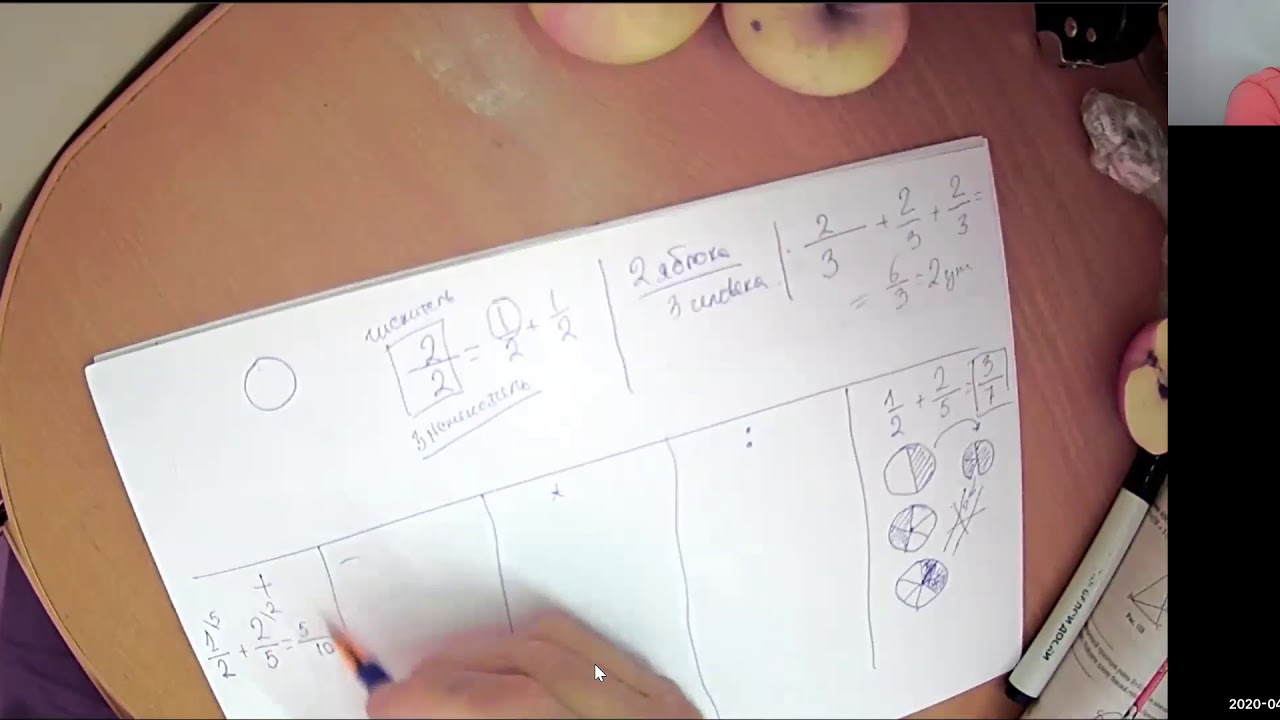 числитель
2/2 = 1/2 + 1/2
Знаменатель
2 яблока
3 человека
2/3 + 2/3 + 2/3 =
= 6/3 = 2
+
-
*
:
1/2 + 2/5 = 3/7
1/5 2/2
1/2 + 2/5 = 5/10
Рис. 123
2020-04